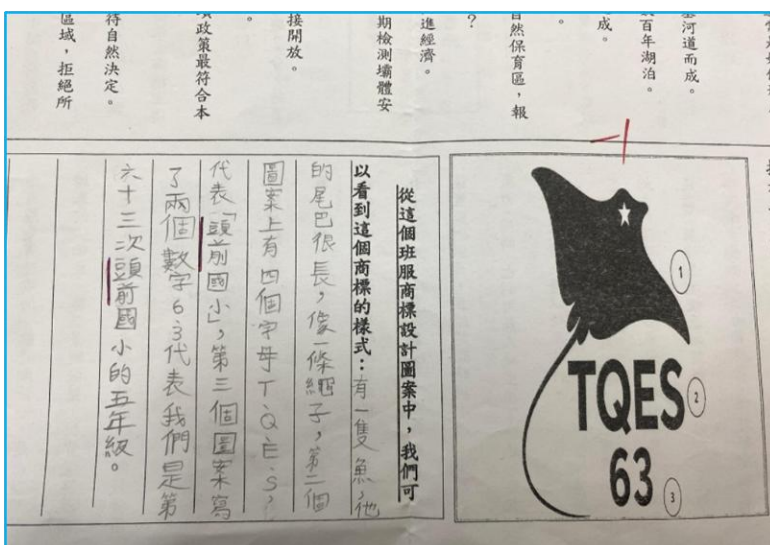 基河道而成。
百年湖泊。
成。
自然保育區，報
？
進經濟。
期檢測壩體安
接開放。
項政策最符合本
待自然決定。
區域，拒絕所
①
TQES ②
63 ③
從這個班服商標設計圖案中，我們可
以看到這個商標的樣式：有一隻魚，他
的尾巴很長，像一條繩子，第二個
圖案上有四個字母T、Q、E、S，
代表「頭前國小」，第三個圖案寫
了兩個數字6、3代表我們是第
六十三次頭前國小的五年級。